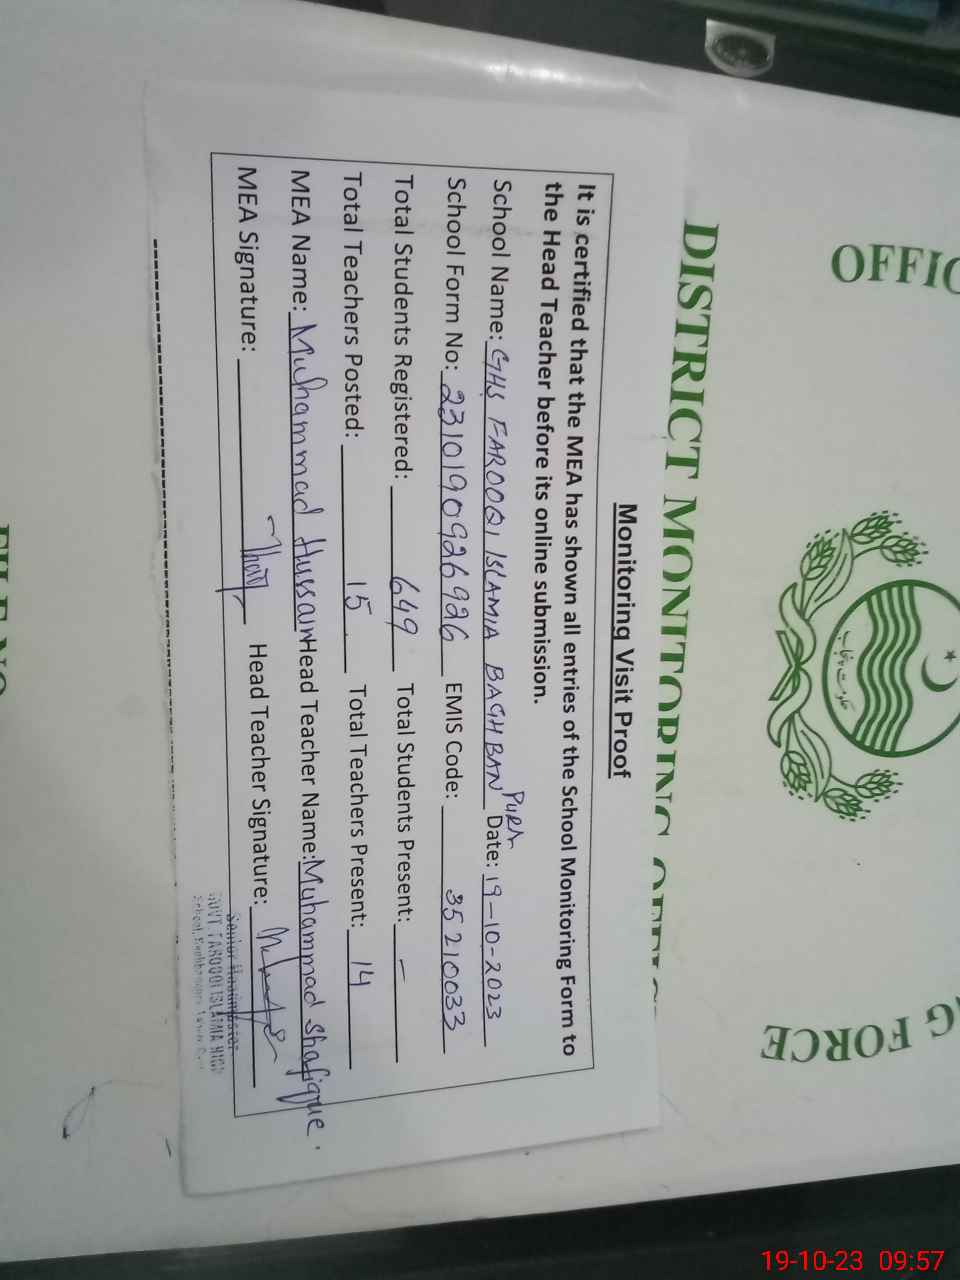 OFFIC
DISTRICT MONITORING OFFIC
G FORCE
Monitoring Visit Proof
It is certified that the MEA has shown all entries of the School Monitoring Form to
the Head Teacher before its online submission.
School Name: GHS FAROOQI ISLAMIA BAGHBANPURA Date: 19-10-2023
School Form No: 2310190926926 EMIS Code: 35210033
Total Students Registered: 649 Total Students Present: -
Total Teachers Posted: 15 Total Teachers Present: 14
MEA Name: Muhammad Hussain Head Teacher Name: Muhammad Shafique.
MEA Signature: Head Teacher Signature:
Senior Headmaster
GOVT FAROOQI ISLAMIA HIGH
FILE NO
19-10-23 09:57